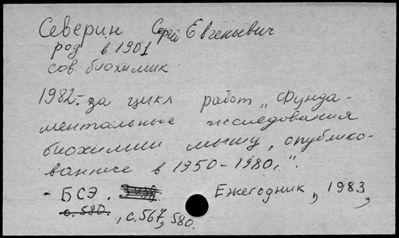 Северин Сергей Евгеньевич
род. в 1901
сов. биохимик
1982 - за цикл работ „Фунда-
ментальные исследования
биохимии мышц, опублико-
ванные в 1950-1980,".
- БСЭ. Ежегодник, 1983,
с. 580, с. 567, 580.